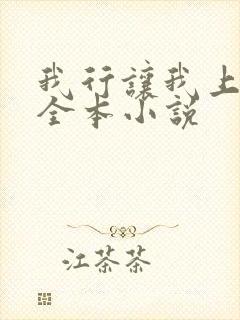 我行讓我上
全本小說
江茶茶